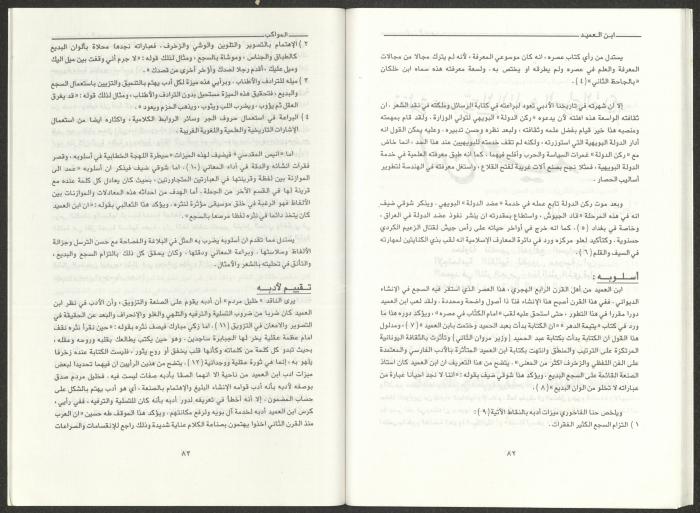 ابن العميد
يستدل من رأي كتاب عصره، انه كان موسوعي المعرفة، لأنه لم يترك مجالا من مجالات
المعرفة والعلم في عصره ولم يطرقه او يختص به. ولسعة معرفته هذه سماه ابن خلكان
«بالجاحظ الثاني» (٤).
إلا ان شهرته في تاريخنا الأدبي تعود لبراعته في كتابة الرسائل وملكته في نقد الشعر. ان
ثقافته الواسعة هذه أهلته لأن يدعوه «ركن الدولة» البويهي لتولي الوزارة. ولقد قام بمهمته
ومنصبه هذا خير قيام بفضل علمه وثقافته، ولبعد نظره وحسن تدبيره. وعليه يمكن القول انه
أدار الدولة البويهية التي استوزرته، ولكنه لم تقف خدمته للبويهيين عند هذا الحد، انما خاض
مع «ركن الدولة» غمرات السياسة والحرب وأفلح فيهما، كما انه طبق معرفته العلمية في خدمة
الدولة البويهية، فمثلا نجح بصنع آلات غريبة لفتح القلاع، واستغل معرفته في الهندسة لتطوير
أساليب الحصار.
وبعد موت ركن الدولة تابع عمله في خدمة «عضد الدولة» البويهي. وينكر شوقي ضيف
انه في هذه المرحلة «قاد الجيوش، واستطاع بمقدرته ان ينشر نفوذ عضد الدولة في العراق،
وخاصة في بغداد (٥)، كما انه خرج في أواخر حياته على رأس جيش لقتال الزعيم الكردي
حسنوية. وكتأكيد لعلو مركزه ورد في دائرة المعارف الإسلامية انه لقب بذي الكتابتين لمهارته
في السيف والقلم (٦).
أسلوبه:
ابن العميد من أهل القرن الرابع الهجري، هذا العصر الذي استقر فيه السجع في الإنشاء
الديواني. ففي هذا القرن أصبح هذا الإنشاء فنا ذا أصول واضحة ومحددة. ولقد لعب ابن العميد
دورا مقررا في هذا التطور، حتى استحق عليه لقب «امام الكتّاب في عصره»، ويؤكد دوره هذا ما
ورد في كتاب «يتيمة الدهر» «ان الكتابة بدأت بعبد الحميد وختمت بابن العميد» (٧). ومدلول
هذا القول ان الكتابة بدأت بكتابة عبد الحميد (وزير مروان الثاني) وتأثرت بالثقافة اليونانية
المرتكزة على الترتيب والمنطق وانتهت بكتابة ابن العميد المتأثرة بالأدب الفارسي والمعتمدة
على الفن اللفظي والزخرف أكثر من المعنى». يتضح من هذا التعريف ان ابن العميد كان استاذ
الصنعة القائمة على السجع البديع. ويؤكد هذا شوقي ضيف بقوله: «اننا لا نجد احيانا عبارة من
عباراته لا تخلو من الوان البديع» (٨).
ويلخص حنا الفاخوري ميزات أدبه بالنقاط الآتية (٩):
١) التزام السجع الكثير الفقرات.
٨٢
المواكب
٢) الإهتمام بالتصوير والتلوين والوشي والزخرف، فعباراته نجدها محلاة بألوان البديع
كالطباق والجناس، وموشاة بالسجع، ومثال لذلك قوله: «لا جرم أني وقفت بين ميل اليك
وميل عليك، أقدم رجلا لصدك وأؤخر أخرى من قصدك».
٣) ميله للترادف والأطناب، وبرأيي هذه ميزة لكل أدب يهتم بالتنميق والتزيين باستعمال السجع
والبديع، فتحقيق هذه الميزة مستحيل بدون الترادف والأطناب. ومثال لذلك قوله: «قد يغرق
العقل ثم يؤوب، ويغرب اللب ويثوب، ويذهب الحزم ويعود».
٤) البراعة في استعمال حروف الجر وسائر الروابط الكلامية، واكثاره ايضا من استعمال
الإشارات التاريخية والعلمية واللغوية الغريبة.
اما «انيس المقدسي» فيضيف لهذه الميزات «سيطرة اللهجة الخطابية في أسلوبه، وقصر
فقرات انشائه والدقة في أداء المعاني (١٠). اما شوقي ضيف فينكر ان أسلوبه «عمد الى
الموازنة بين لفظة وقرينتها في العبارتين المتجاورتين، بحيث كان يعادل كل كلمة عنده مع
قرينة لها في القسم الآخر من الجملة. أما الهدف من احداثه هذه المعادلات والموازنات بين
الألفاظ فهو الرغبة في خلق موسيقى مؤثرة لنثره. ويؤكد هذا الثعالبي بقوله: «ان ابن العميد
كان يتخذ دائما في نثره لفظا مرصعا بالسجع».
يستدل مما تقدم ان أسلوبه يضرب به المثل في البلاغة والفصاحة مع حسن الترسل وجزالة
الألفاظ وسلاستها، وبراعة المعاني ودقتها، وكان يحقق كل ذلك بالتزام السجع والبديع،
والتأنق في تحليته بالشعر والأمثال.
تقييم لأدبه
يرى الناقد «خليل مردم» أن أدبه يقوم على الصنعة والتزويق، وأن الأدب في نظر ابن
العميد كان ضربا من ضروب التسلية والترفيه والتلهي والغلو والإنحراف والبعد عن الحقيقة في
التصوير والامعان في التزويق (١١). اما زكي مبارك فيصف نثره بقوله: «حين نقرأ نثره نقف
امام عظمة عقلية يخر لها الجبابرة ساجدين. وهو حين يكتب يطالعك بقلبه وروحه وعقله،
بحيث تبدو كل كلمة من كلماته وكأنها قلب يخفق أو روح يثور، فليست الكتابة عنده زخرفا
يلهو به، إنما هي ثورة عقلية ووجدانية (١٢). يتضح من هذين الرأيين ان فيهما تحديدا لبعض
ميزات أدب ابن العميد من ناحية الا انهما ألصقا بأدبه صفات ليست فيه. فخليل مردم صدق
بوصفه لأدبه بأنه أدب قوامه الإنشاء البليغ والإهتمام بالصنعة، أي هو أدب يهتم بالشكل على
حساب المضمون، إلا أنه أخطأ في تعريفه لدور أدبه بأنه كان للتسلية والترفيه، ففي رأيي،
كرس ابن العميد أدبه لخدمة آل بويه ولرفع مكانتهم. ويؤكد هذا الموقف طه حسين «ان العرب
منذ القرن الثاني اخذوا يهتمون بصناعة الكلام عناية شديدة وذلك راجع للإنقسامات والصراعات
٨٣